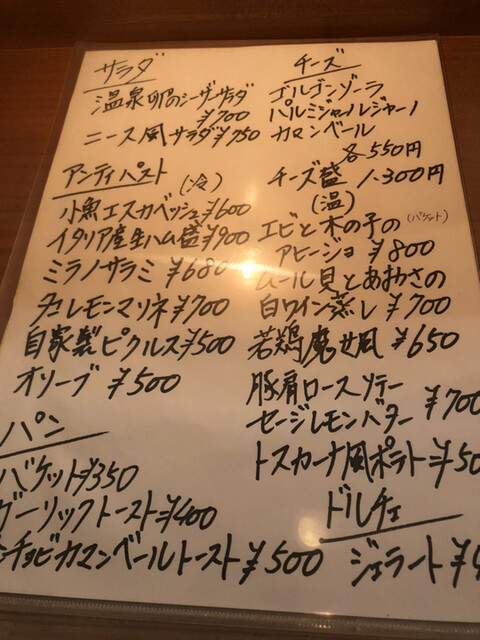 サラダ
温泉卵のシーザーサラダ
¥700
ニース風サラダ¥750
アンティパスト
(冷)
小魚エスカベッシュ¥600
イタリア産生ハム盛¥900
ミラノサラミ ¥680
タコレモンマリネ¥700
自家製ピクルス¥500
オリーブ ¥500
パン
バケット¥350
ガーリックトースト¥400
ンチョビカマンベールトースト¥500
チーズ
ゴルゴンゾーラ
パルミジャーノレジャーノ
カマンベール
各550円
チーズ盛 1,300円
(温)
エビと木の子の(バケット)
アヒージョ ¥800
ムール貝とあおさの
白ワイン蒸し ¥700
若鶏魔女風 ¥650
豚肩ロースソテー
セージレモンバター ¥700
トスカーナ風ポテト¥50
ドルチェ
ジェラート¥